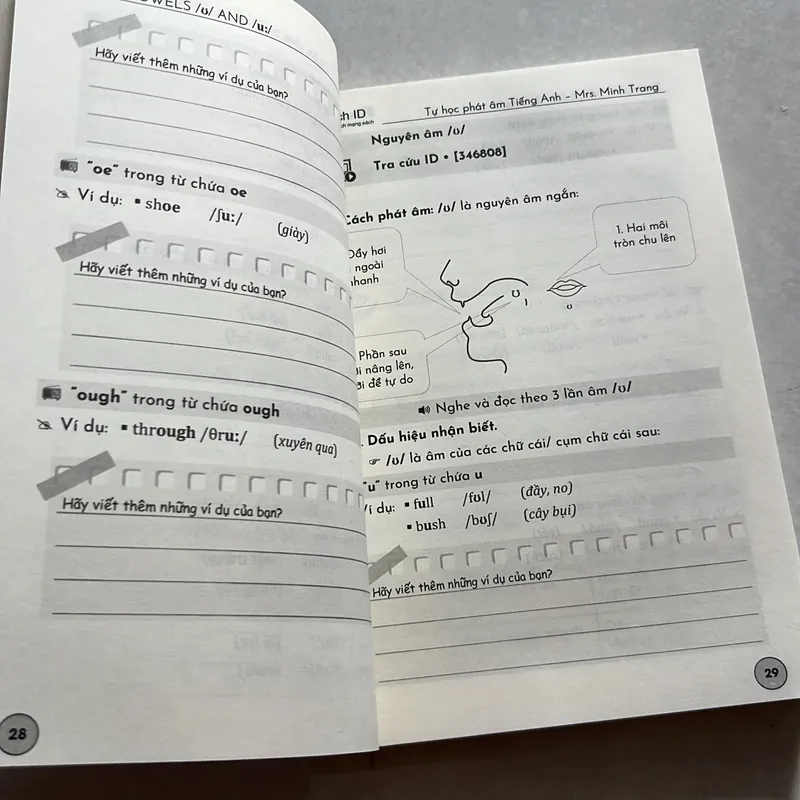 VOWELS /ʊ/ AND /u:/
Hãy viết thêm những ví dụ của bạn?
"oe" trong từ chứa oe
Ví dụ: ▪ shoe /ʃu:/ (giày)
Hãy viết thêm những ví dụ của bạn?
"ough" trong từ chứa ough
Ví dụ: ▪ through /θru:/ (xuyên qua)
Hãy viết thêm những ví dụ của bạn?
28
ID
Tự học phát âm Tiếng Anh – Mrs. Minh Trang
Nguyên âm /ʊ/
Tra cứu ID • [346808]
Cách phát âm: /ʊ/ là nguyên âm ngắn:
Đẩy hơi
ngoài
nhanh
1. Hai môi
tròn chu lên
ʊ
ʊ
Phần sau
nâng lên,
để tự do
Nghe và đọc theo 3 lần âm /ʊ/
Dấu hiệu nhận biết.
☞ /ʊ/ là âm của các chữ cái/ cụm chữ cái sau:
"u" trong từ chứa u
Ví dụ: ▪ full /fʊl/ (đầy, no)
▪ bush /bʊʃ/ (cây bụi)
Hãy viết thêm những ví dụ của bạn?
29